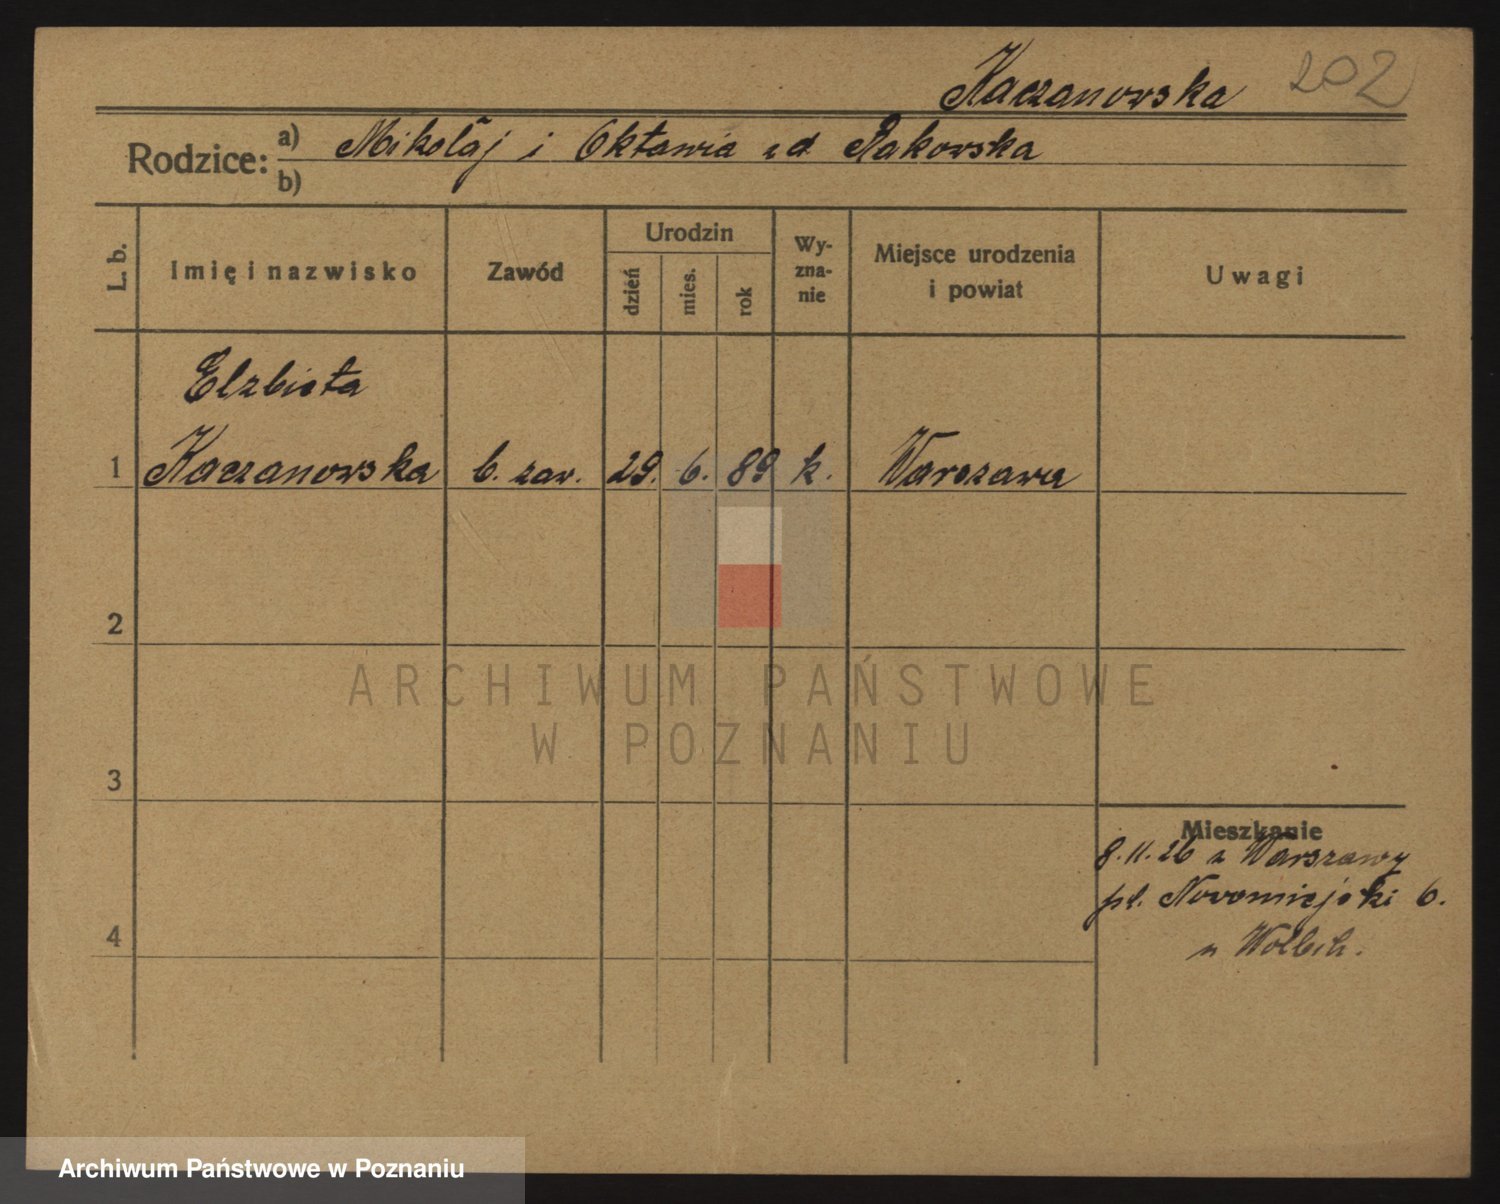 Kaczanowska 202
Rodzice: a) Mikołaj i Oktawia zd Rakowska
b)
L. b.
Imię i nazwisko
Zawód
Urodzin
dzień
mies.
rok
Wy-
zna-
nie
Miejsce urodzenia
i powiat
Uwagi
Elzbieta
1 Kaczanowska b. zaw. 29. 6. 89 k. Warszawa
2
3
4
Mieszkanie
8.11.26 z Warszawy
pl. Nowomiejski 6.
ARCHIWUM PAŃSTWOWE
W POZNANIU
Archiwum Państwowe w Poznaniu